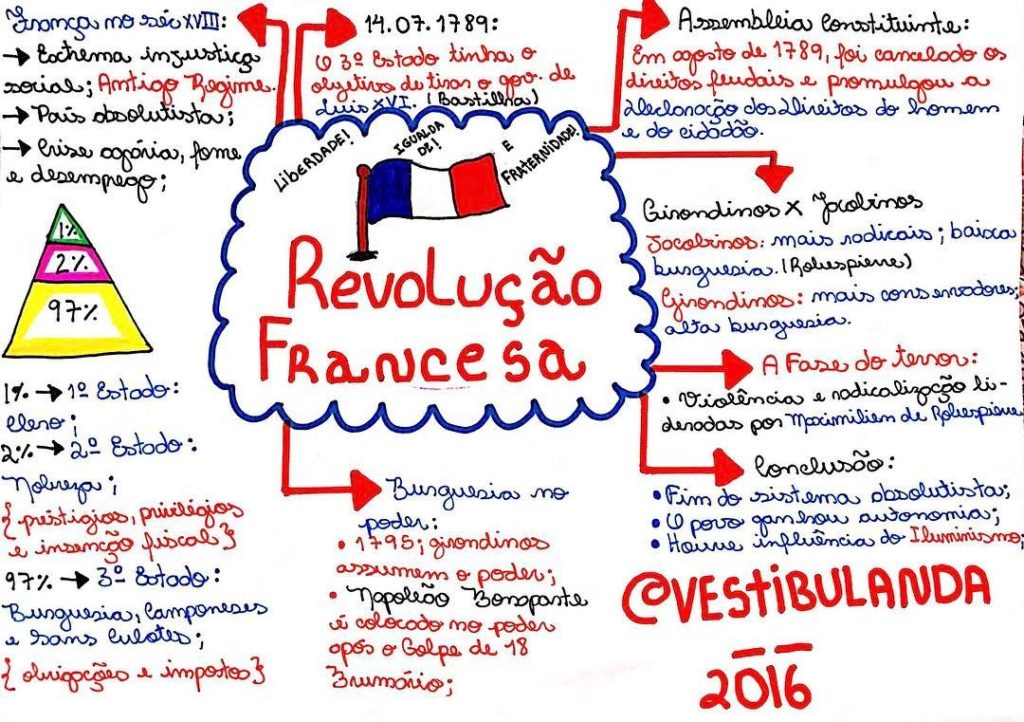 França no séc XVIII:
→ Extrema injustiça
social; Antigo Regime.
→ País absolutista;
→ Crise agária, fome
e desemprego;
1%
2%
97%
1% → 1º Estado:
Clero;
2% → 2º Estado:
Nobreza;
{ prestígios, privilégios
e insenção fiscal }
97% → 3º Estado:
Burguesia, Camponeses
e Sans Culotes;
{ obrigações e impostos }
14.07.1789:
O 3º Estado tinha o
objetivo de tirar o gov. de
Luis XVI. (Bastilha)
LIBERDADE!
IGUALDA
DE!
E
FRATERNIDADE!
Revolução
Francesa
Burguesia no
poder:
• 1795; girondinos
assumem o poder;
• Napoleão Bonaparte
é colocado no poder
após o Golpe de 18
Brumário;
Assembleia Constituinte:
Em agosto de 1789, foi cancelado os
direitos feudais e promulgou a
Declaração dos Direitos do homem
e do cidadão.
Girondinos X Jacobinos
Jacobinos: mais radicais; baixa
burguesia. (Robespierre)
Girondinos: mais conservadores;
alta burguesia.
A Fase do terror:
• Violência e radicalização li-
deradas por Maximilien de Robespierre
Conclusão:
• Fim do sistema absolutista;
• O povo ganhou autonomia;
• Houve influência do Iluminismo;
@VESTIBULANDA
2016